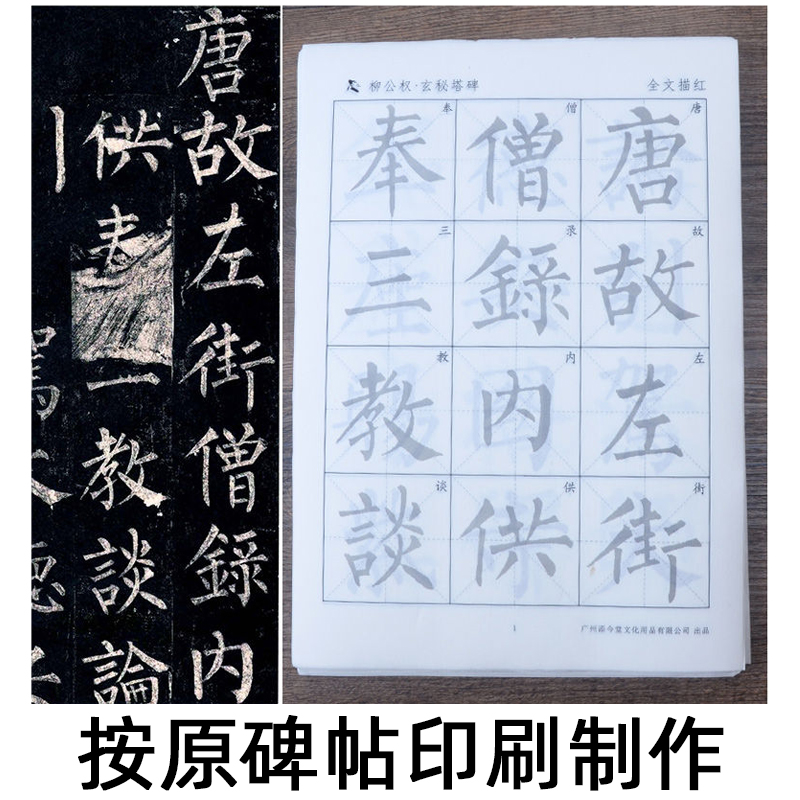 唐故左街僧錄内
供奉一教談論
柳公权·玄秘塔碑
全文描红
唐 唐
故 故
左 左
街 街
僧 僧
录 錄
内 内
供 供
奉 奉
三 三
教 教
谈 談
1
广州添今堂文化用品有限公司 出品
按原碑帖印刷制作